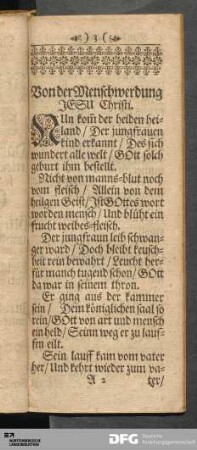 ) 3 (
Von der Menschwerdung
JESU Christi.
NUn kom̃ der heiden hei-
land / Der jungfrauen
kind erkannt / Des sich
wundert alle welt / GOtt solch
geburt ihm bestellt.
Nicht von manns-blut noch
vom fleisch / Allein von dem
heilgen Geist / Ist GOttes wort
worden mensch / Und blüht ein
frucht weibes-fleisch.
Der jungfraun leib schwan-
ger ward / Doch bleibt keusch-
heit rein bewahrt / Leucht her-
für manch tugend schon / GOtt
da war in seinem thron.
Er ging aus der kammer
sein / Dem königlichen saal so
rein / GOtt von art und mensch
ein held / Seinn weg er zu lauf-
fen eilt.
Sein lauff kam vom vater
her / Und kehrt wieder zum va-
A 2 ter /
DFG
Deutsche
Forschungsgemeinschaft